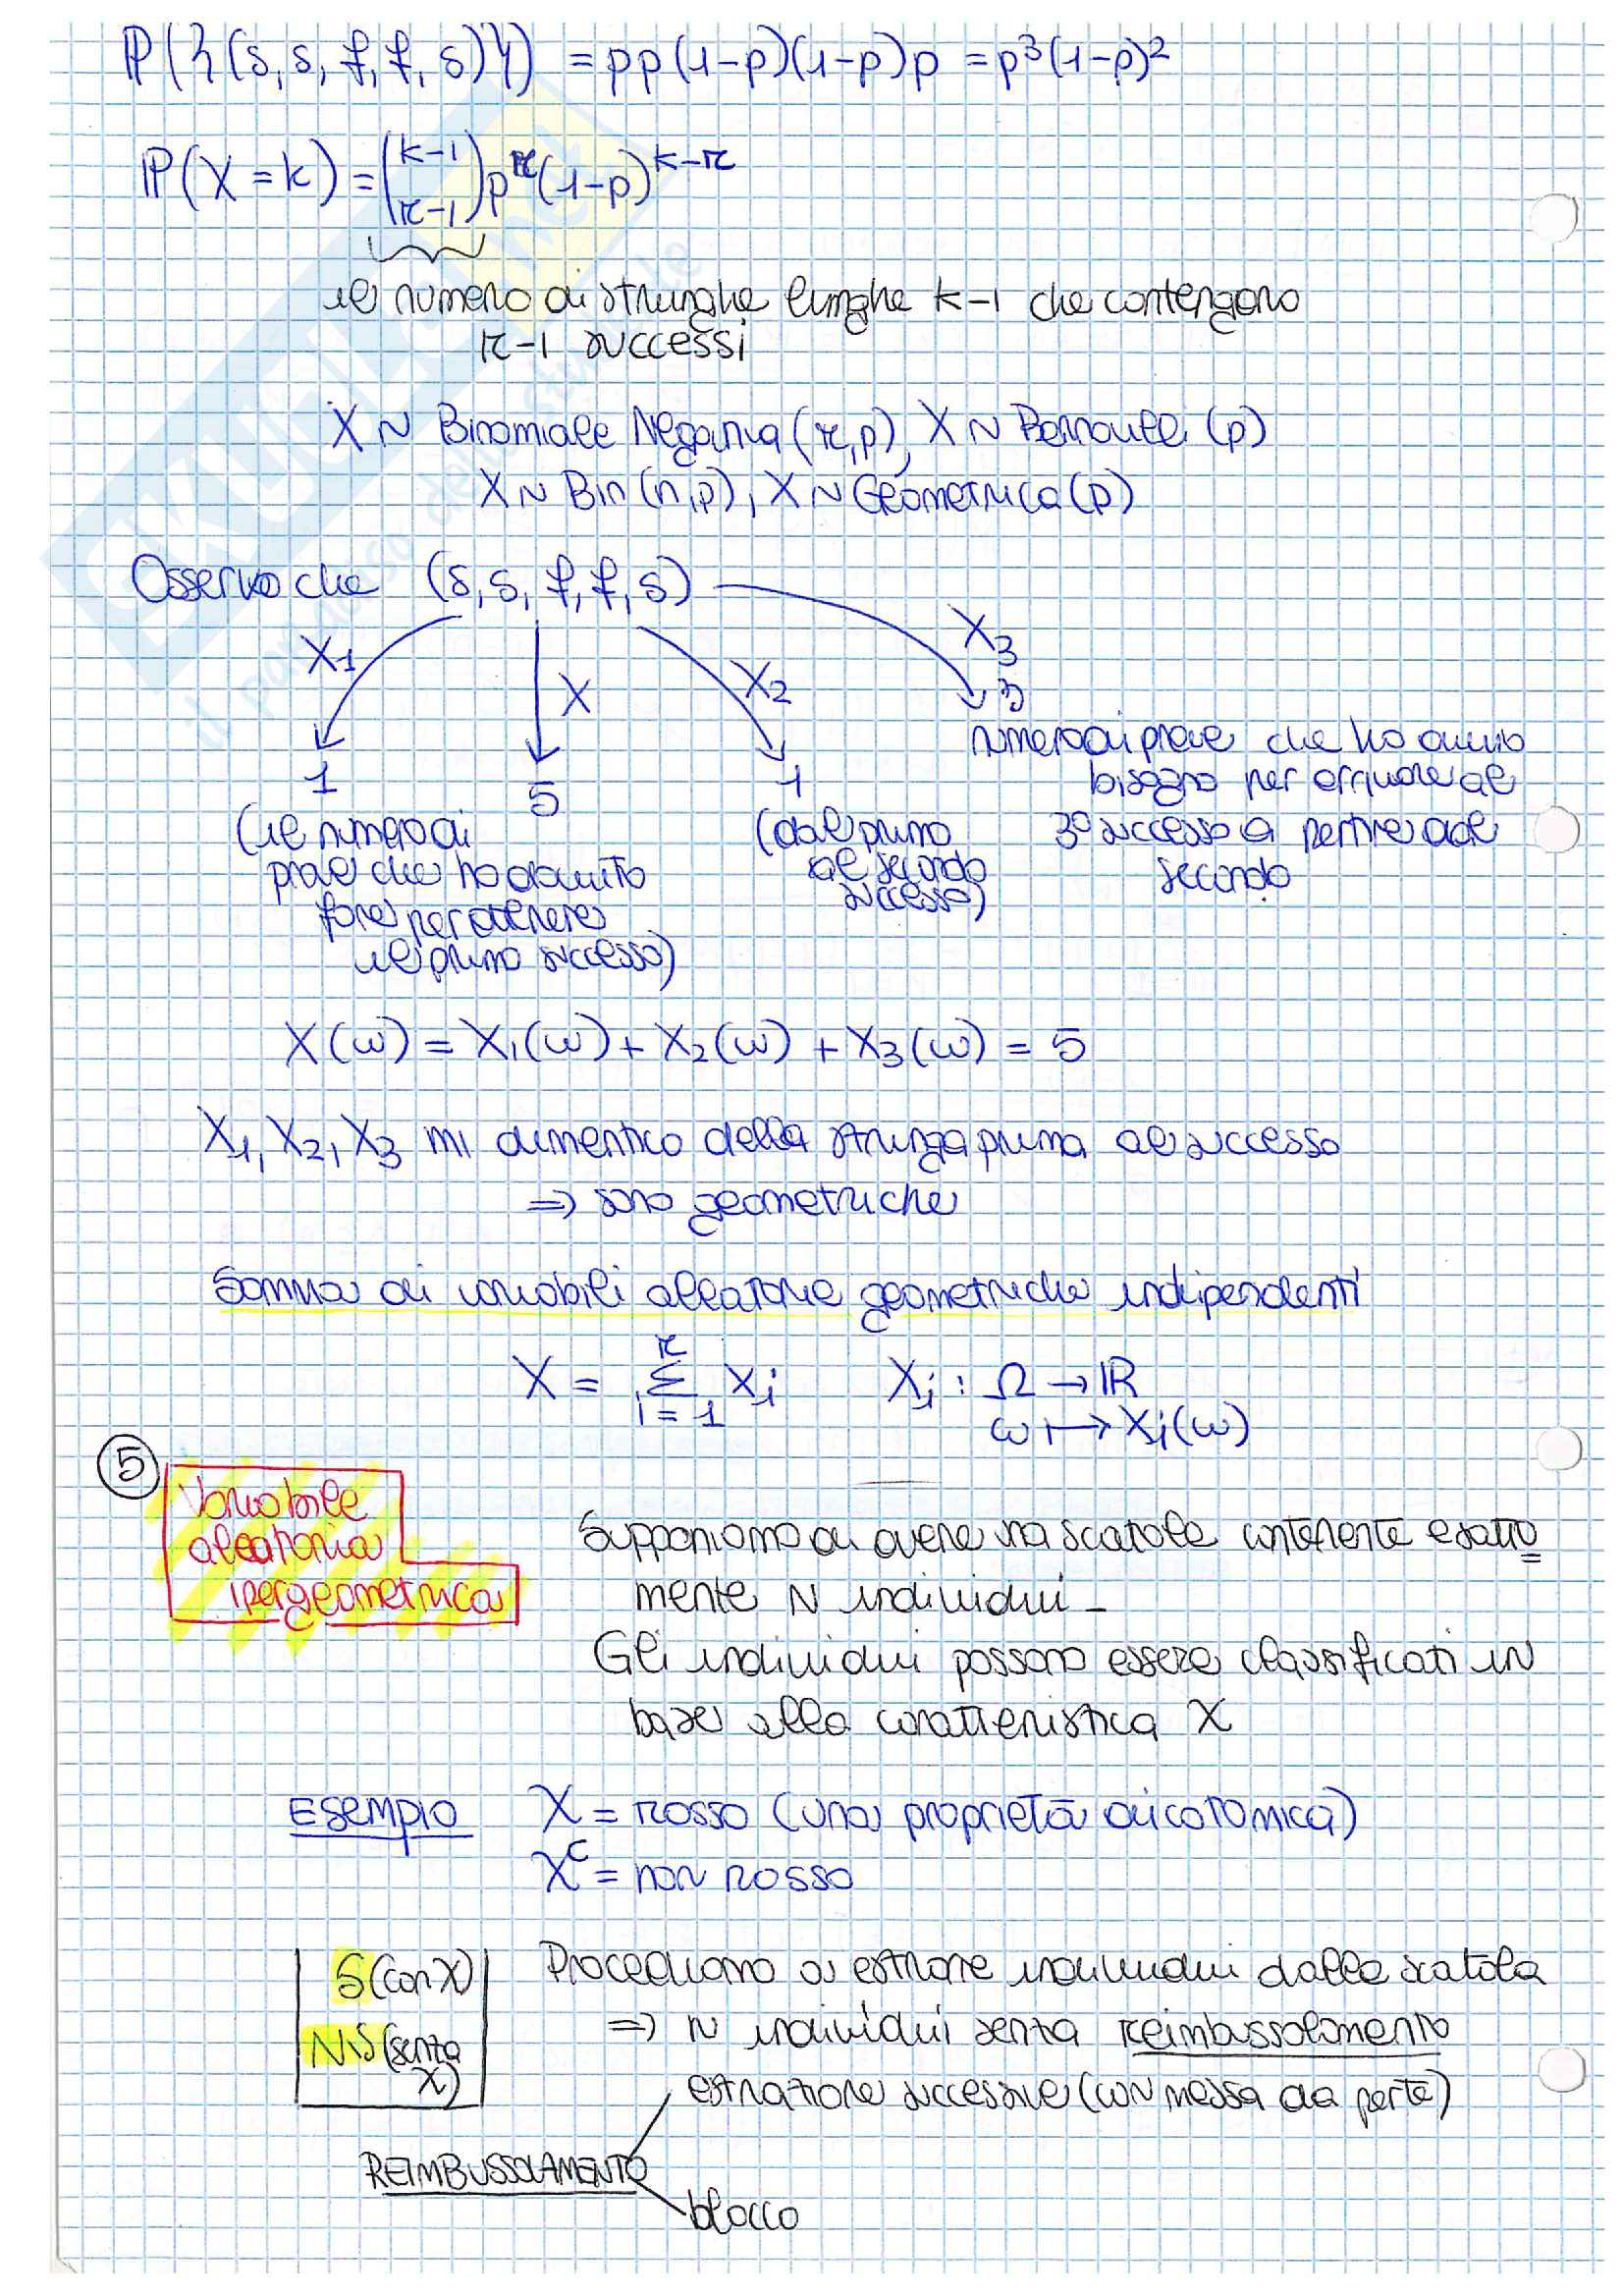 P({(s,s,f,f,s)}) = pp(1-p)(1-p)p = p³(1-p)²
P(X=k) = (k-1 r-1) p^r (1-p)^k-r
il numero di stringhe lunghe k-1 che contengono
r-1 successi
X ~ Binomiale Negativa (r,p), X ~ Bernoulli (p)
X ~ Bin(n,p), X ~ Geometrica(p)
Osservo che (s,s,f,f,s)
X1 X X2 X3
1 5 1 3
(il numero di
prove che ho dovuto
fare per ottenere
il primo successo)
(dal primo
al secondo
successo)
numero di prove che ho avuto
bisogno per arrivare al
3° successo a partire dal
secondo
X(ω) = X1(ω) + X2(ω) + X3(ω) = 5
X1, X2, X3 mi dimentico della stringa prima al successo
⇒ sono geometriche
Somma di variabili aleatorie geometriche indipendenti
X = r Σ i=1 Xi Xi : Ω → ℝ
ω ↦ Xi(ω)
5
Variabile
aleatoria
ipergeometrica
Supponiamo di avere una scatola contenente esatta
mente N individui -
Gli individui possono essere classificati in
base alla caratteristica X
Esempio X = rosso (una proprietà dicotomica)
X^c = non rosso
S(con X)
NS (senza
X)
Procediamo a estrarre individui dalla scatola
⇒ N individui senza reimbussolamento
estrazione successive (con messa da parte)
REIMBUSSOLAMENTO
blocco